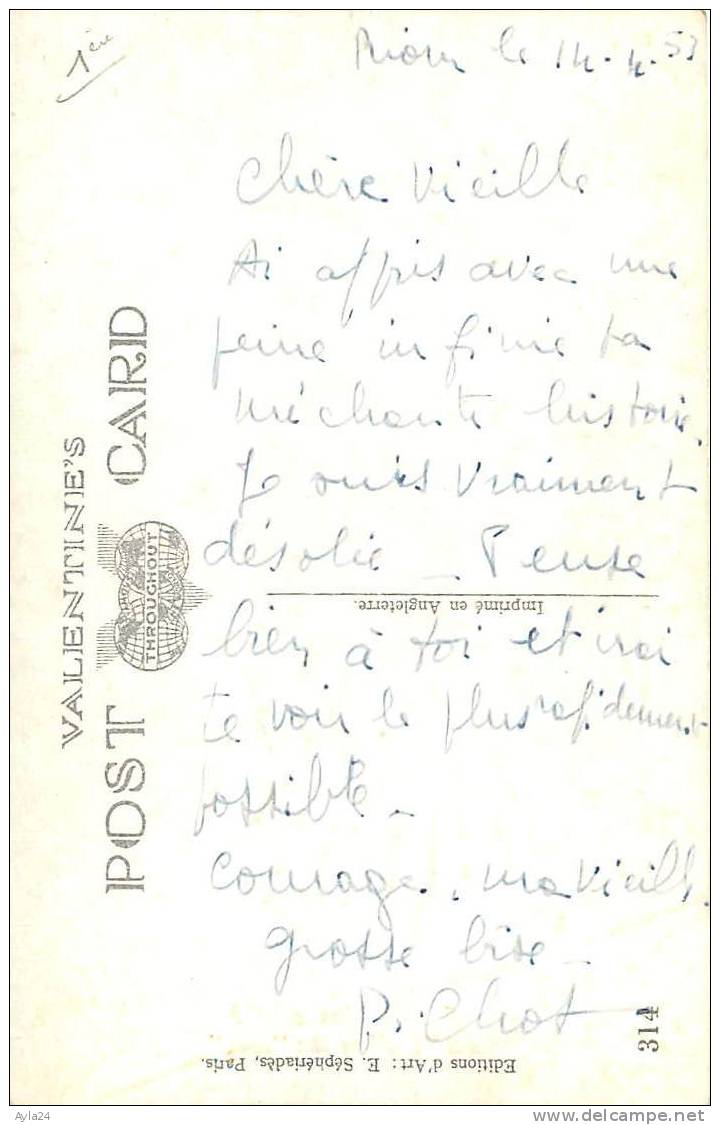 1ère
Riom le 14.4.53
Chère Vieille
Ai appris avec une
peine infinie ta
méchante histoire.
Je suis vraiment
désolée _ Pense
bien à toi et irai
te voir le plus rapidement
possible _
Courage, ma Vieille.
grosse bise _
P. Chot
VALENTINE'S
POST CARD
THROUGHOUT
Imprimé en Angleterre.
Editions d'Art : E. Séphériadès, Paris.
314
Ayla24
www.delcampe.net